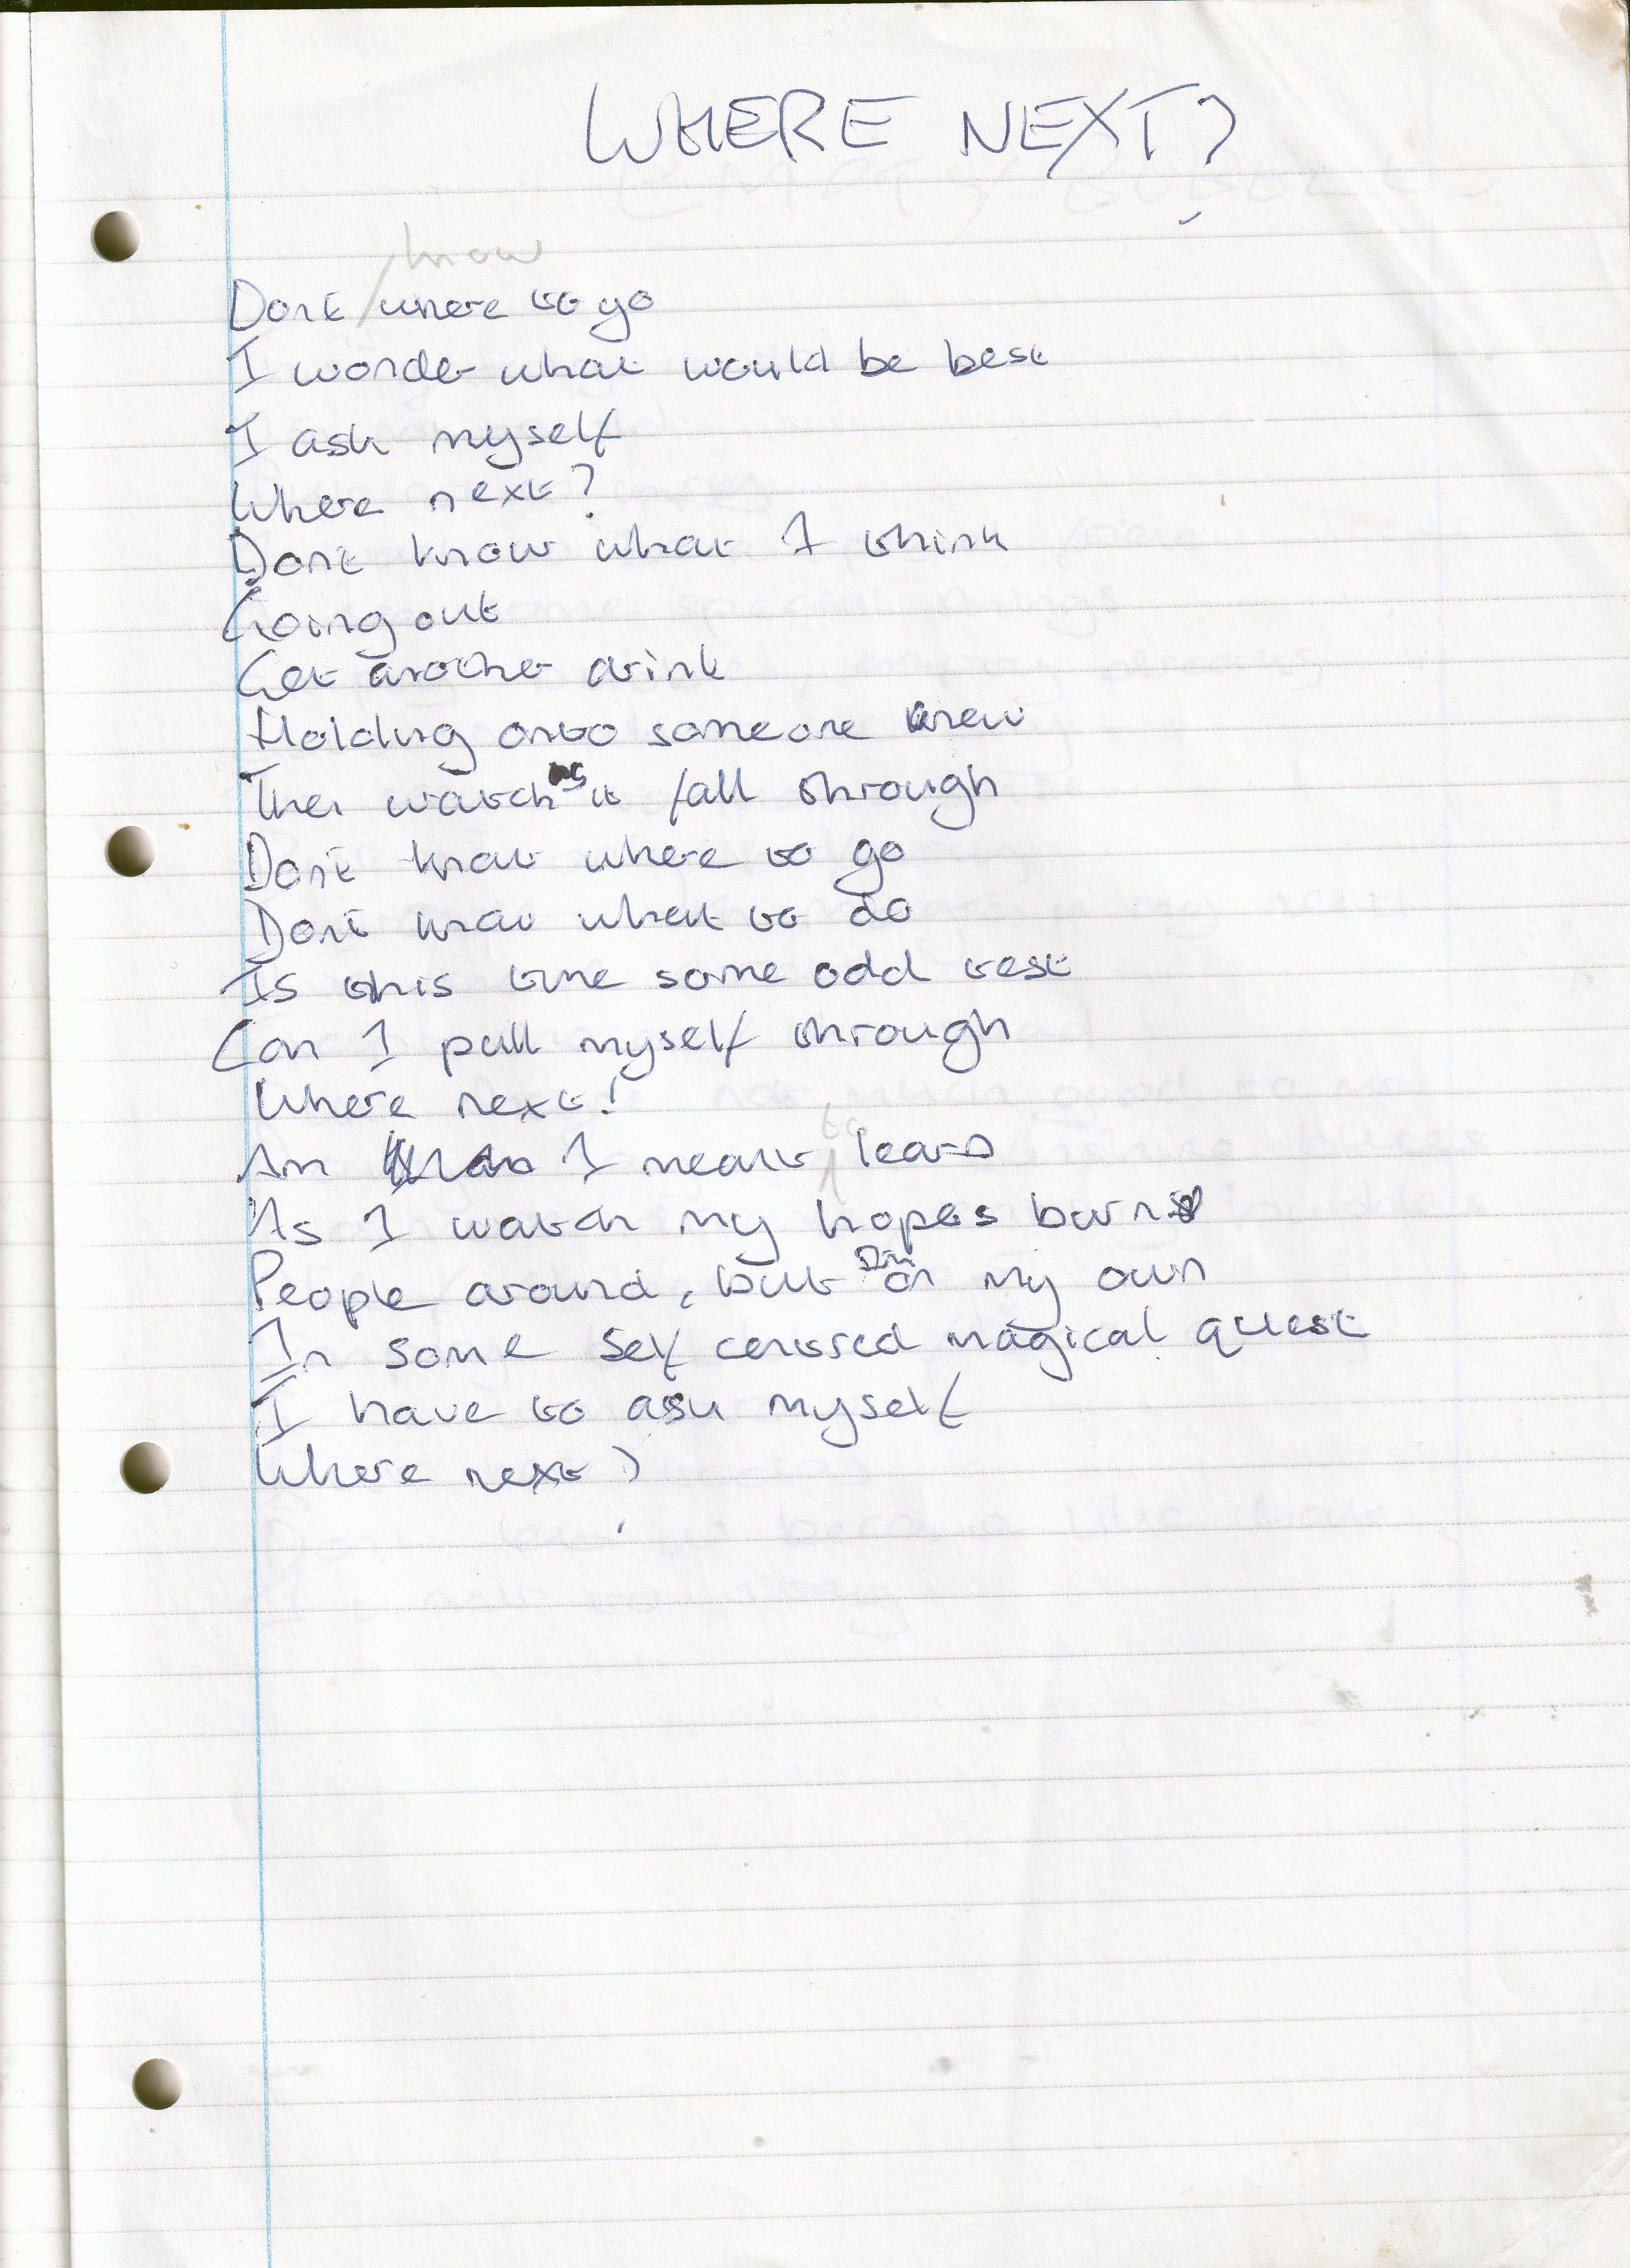 WHERE NEXT?
Dont know where to go
I wonder what would be best
I ask myself
Where next?
Dont know what I think
Going out
Get another drink
Holding onto someone new
Then watch as it fall through
Dont know where to go
Dont know what to do
Is this time some odd test
Can I pull myself through
Where next?
Am I meant to learn
As I watch my hopes burn
People around, but I'm on my own
In some self centered magical quest
I have to ask myself
Where next?